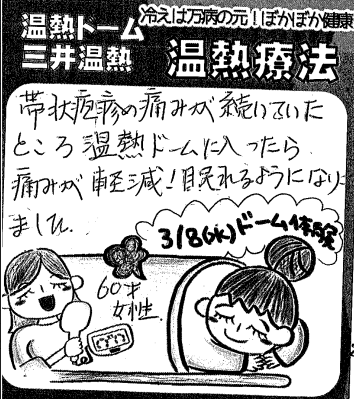 冷えは万病の元！ぽかぽか健康
温熱ドーム
三井温熱
温熱療法
帯状疱疹の痛みが続いていた
ところ温熱ドームに入ったら
痛みが軽減！眠れるようになり
ました
3/8(水)ドーム体験
60才
女性